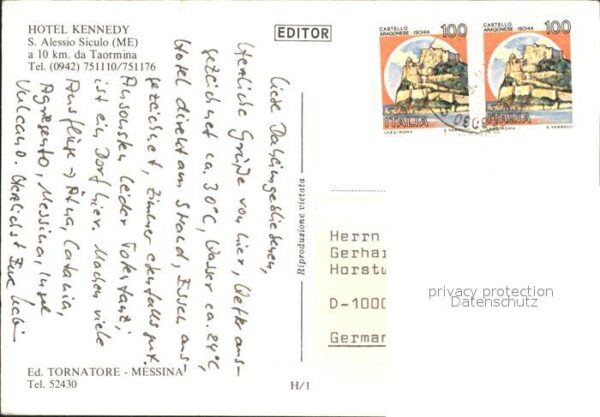 HOTEL KENNEDY
S. Alessio Siculo (ME)
a 10 km. da Taormina
Tel. (0942) 751110/751176
EDITOR
100
CASTELLO
ARAGONESE - ISCHIA
ITALIA
I.P.Z.S. - ROMA
E. VANGELLI
100
CASTELLO
ARAGONESE - ISCHIA
ITALIA
I.P.Z.S. - ROMA
E. VANGELLI
Liebe Daheimgebliebenen,
Herzliche Grüße von hier, Wetter aus-
gezeichnet ca. 30°C, Wasser ca. 24°C,
Hotel direkt am Strand, Essen aus-
gezeichnet, Zimmer ebenfalls gut.
Ansonsten leider Totentanz,
ist ein Dorf hier. Machen viele
Ausflüge → Ätna, Catania,
Agrigento, Messina, Insel
Vulcano. Herzlichst Eure
Riproduzione vietata
Herrn
Gerhar
Horstw
D-1000
German
privacy protection
Datenschutz
Ed. TORNATORE - MESSINA
Tel. 52430
H/1